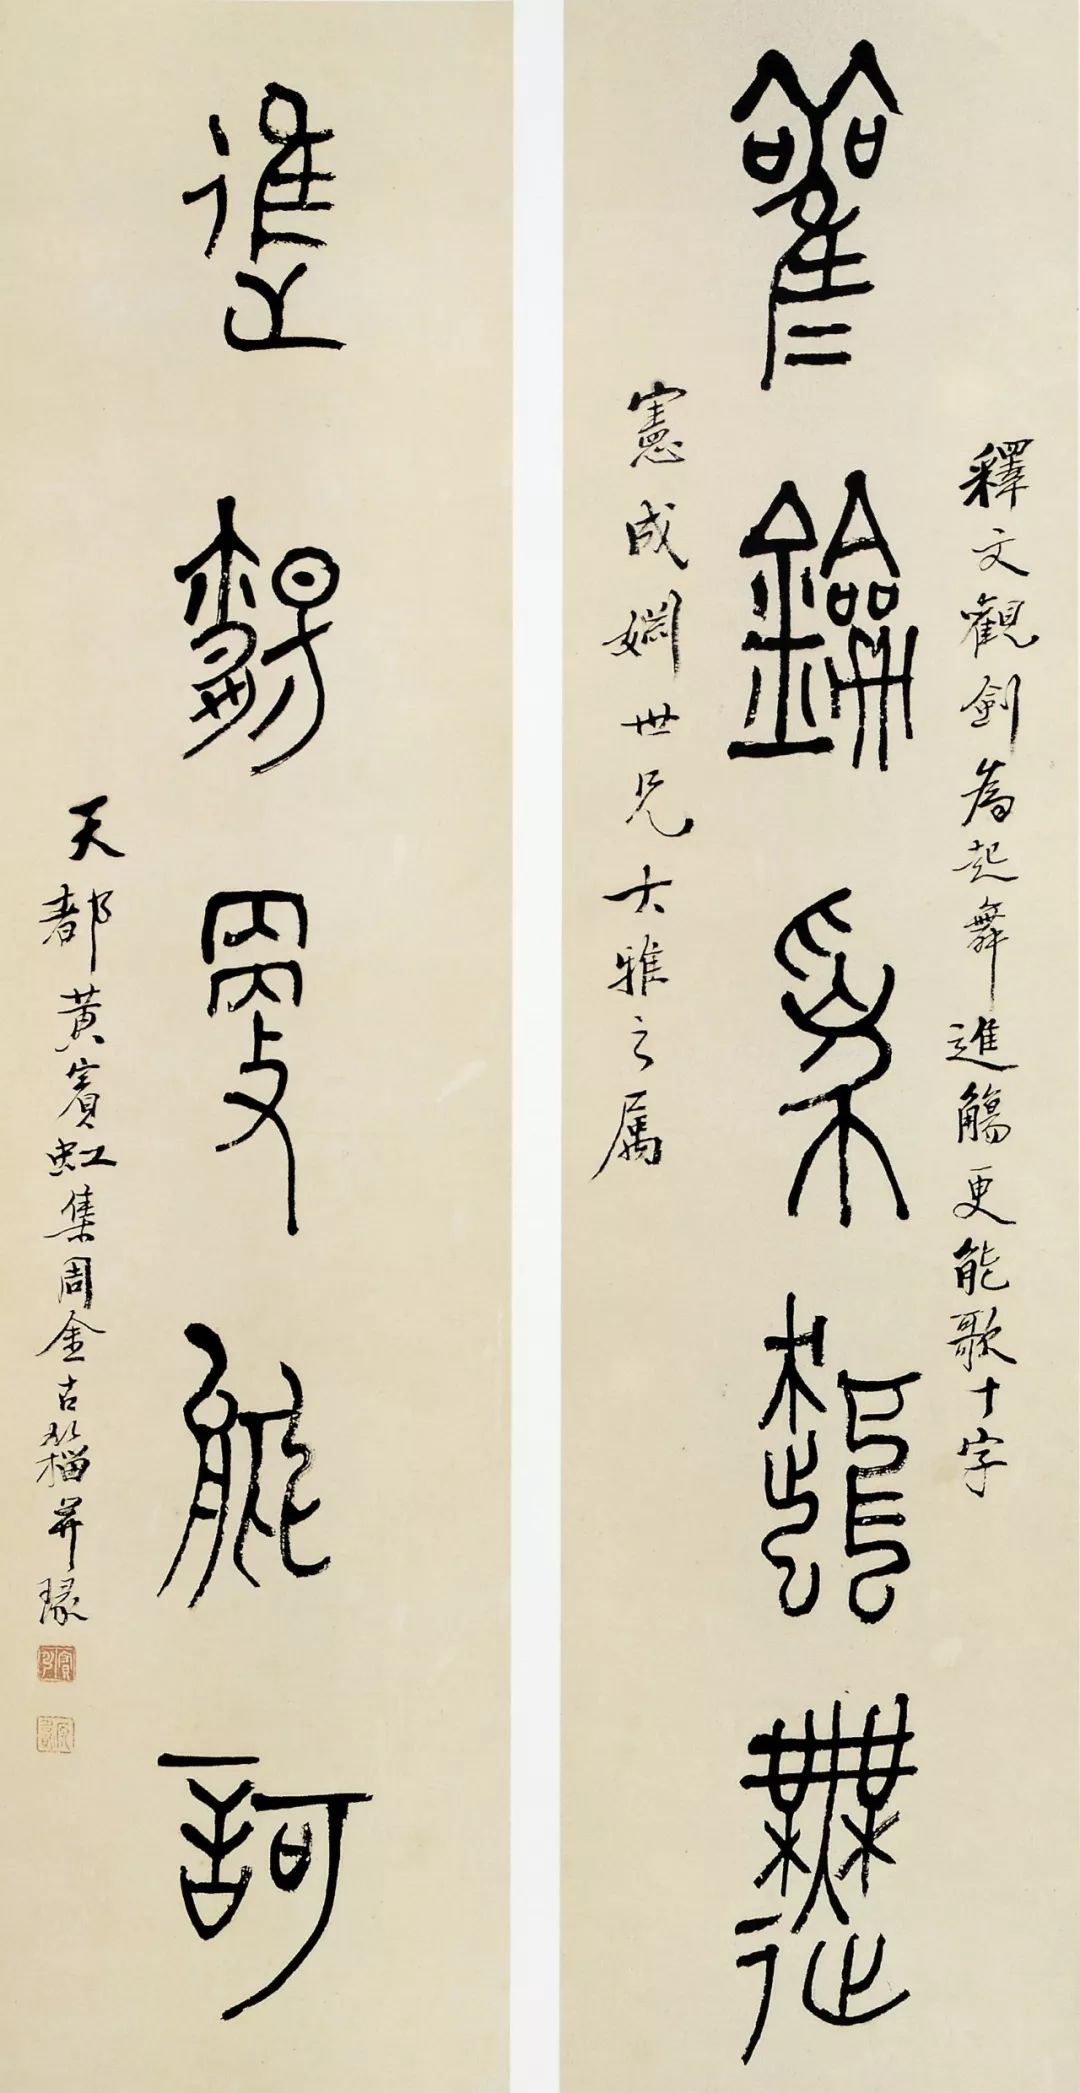 釋文觀劍為起舞進觴更能歌十字
觀劍為起舞
憲成嫻世兄大雅之属
進觴更能歌
天都黃賓虹集周金古籀并瑑